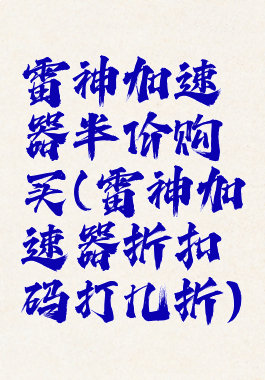 雷神加速
器半价购
买(雷神加
速器折扣
码打几折)